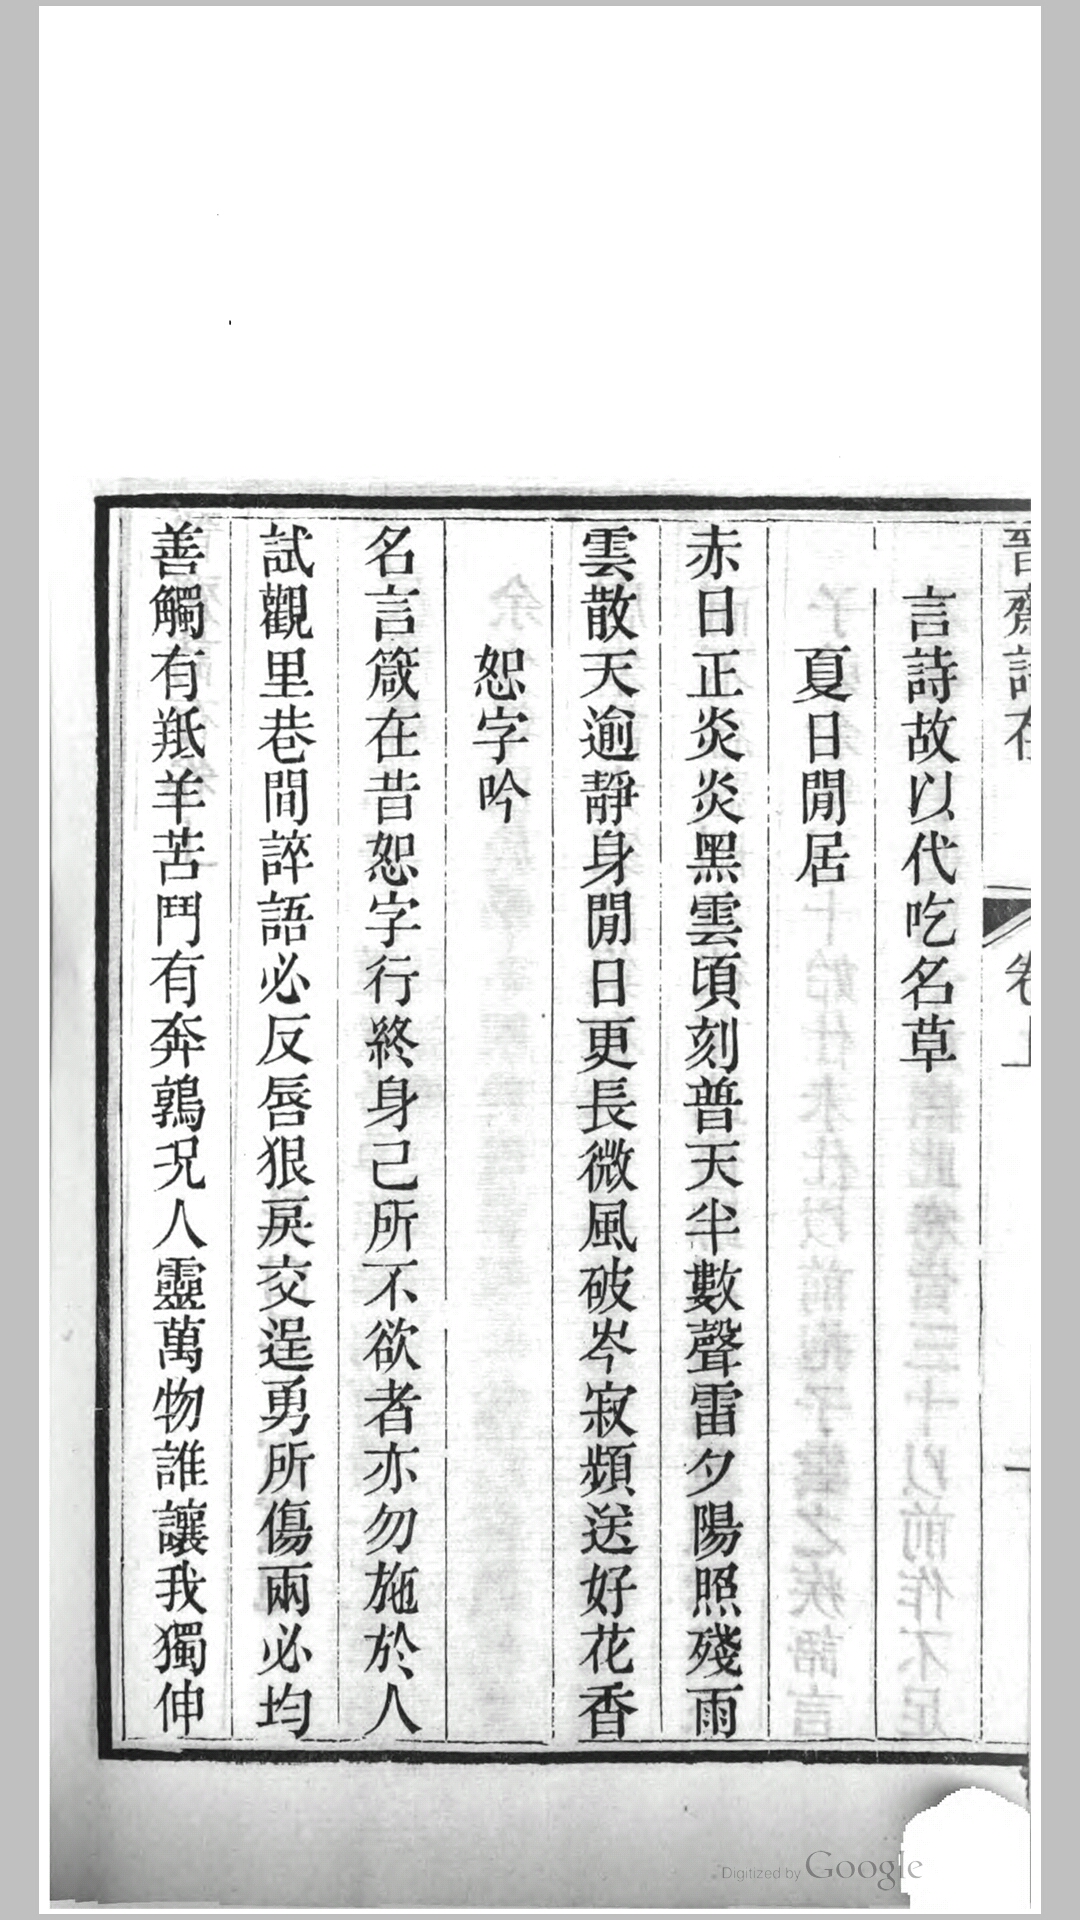 晉齋詩存 卷上 一
言詩故以代吃名草
夏日閒居
赤日正炎炎黑雲頃刻普天半數聲雷夕陽照殘雨
雲散天逾靜身閒日更長微風破岑寂頻送好花香
恕字吟
名言箴在昔恕字行終身己所不欲者亦勿施於人
試觀里巷間誶語必反唇狠戾交逞勇所傷兩必均
善觸有羝羊苦鬥有奔鶉況人靈萬物誰讓我獨伸
Digitized by Google